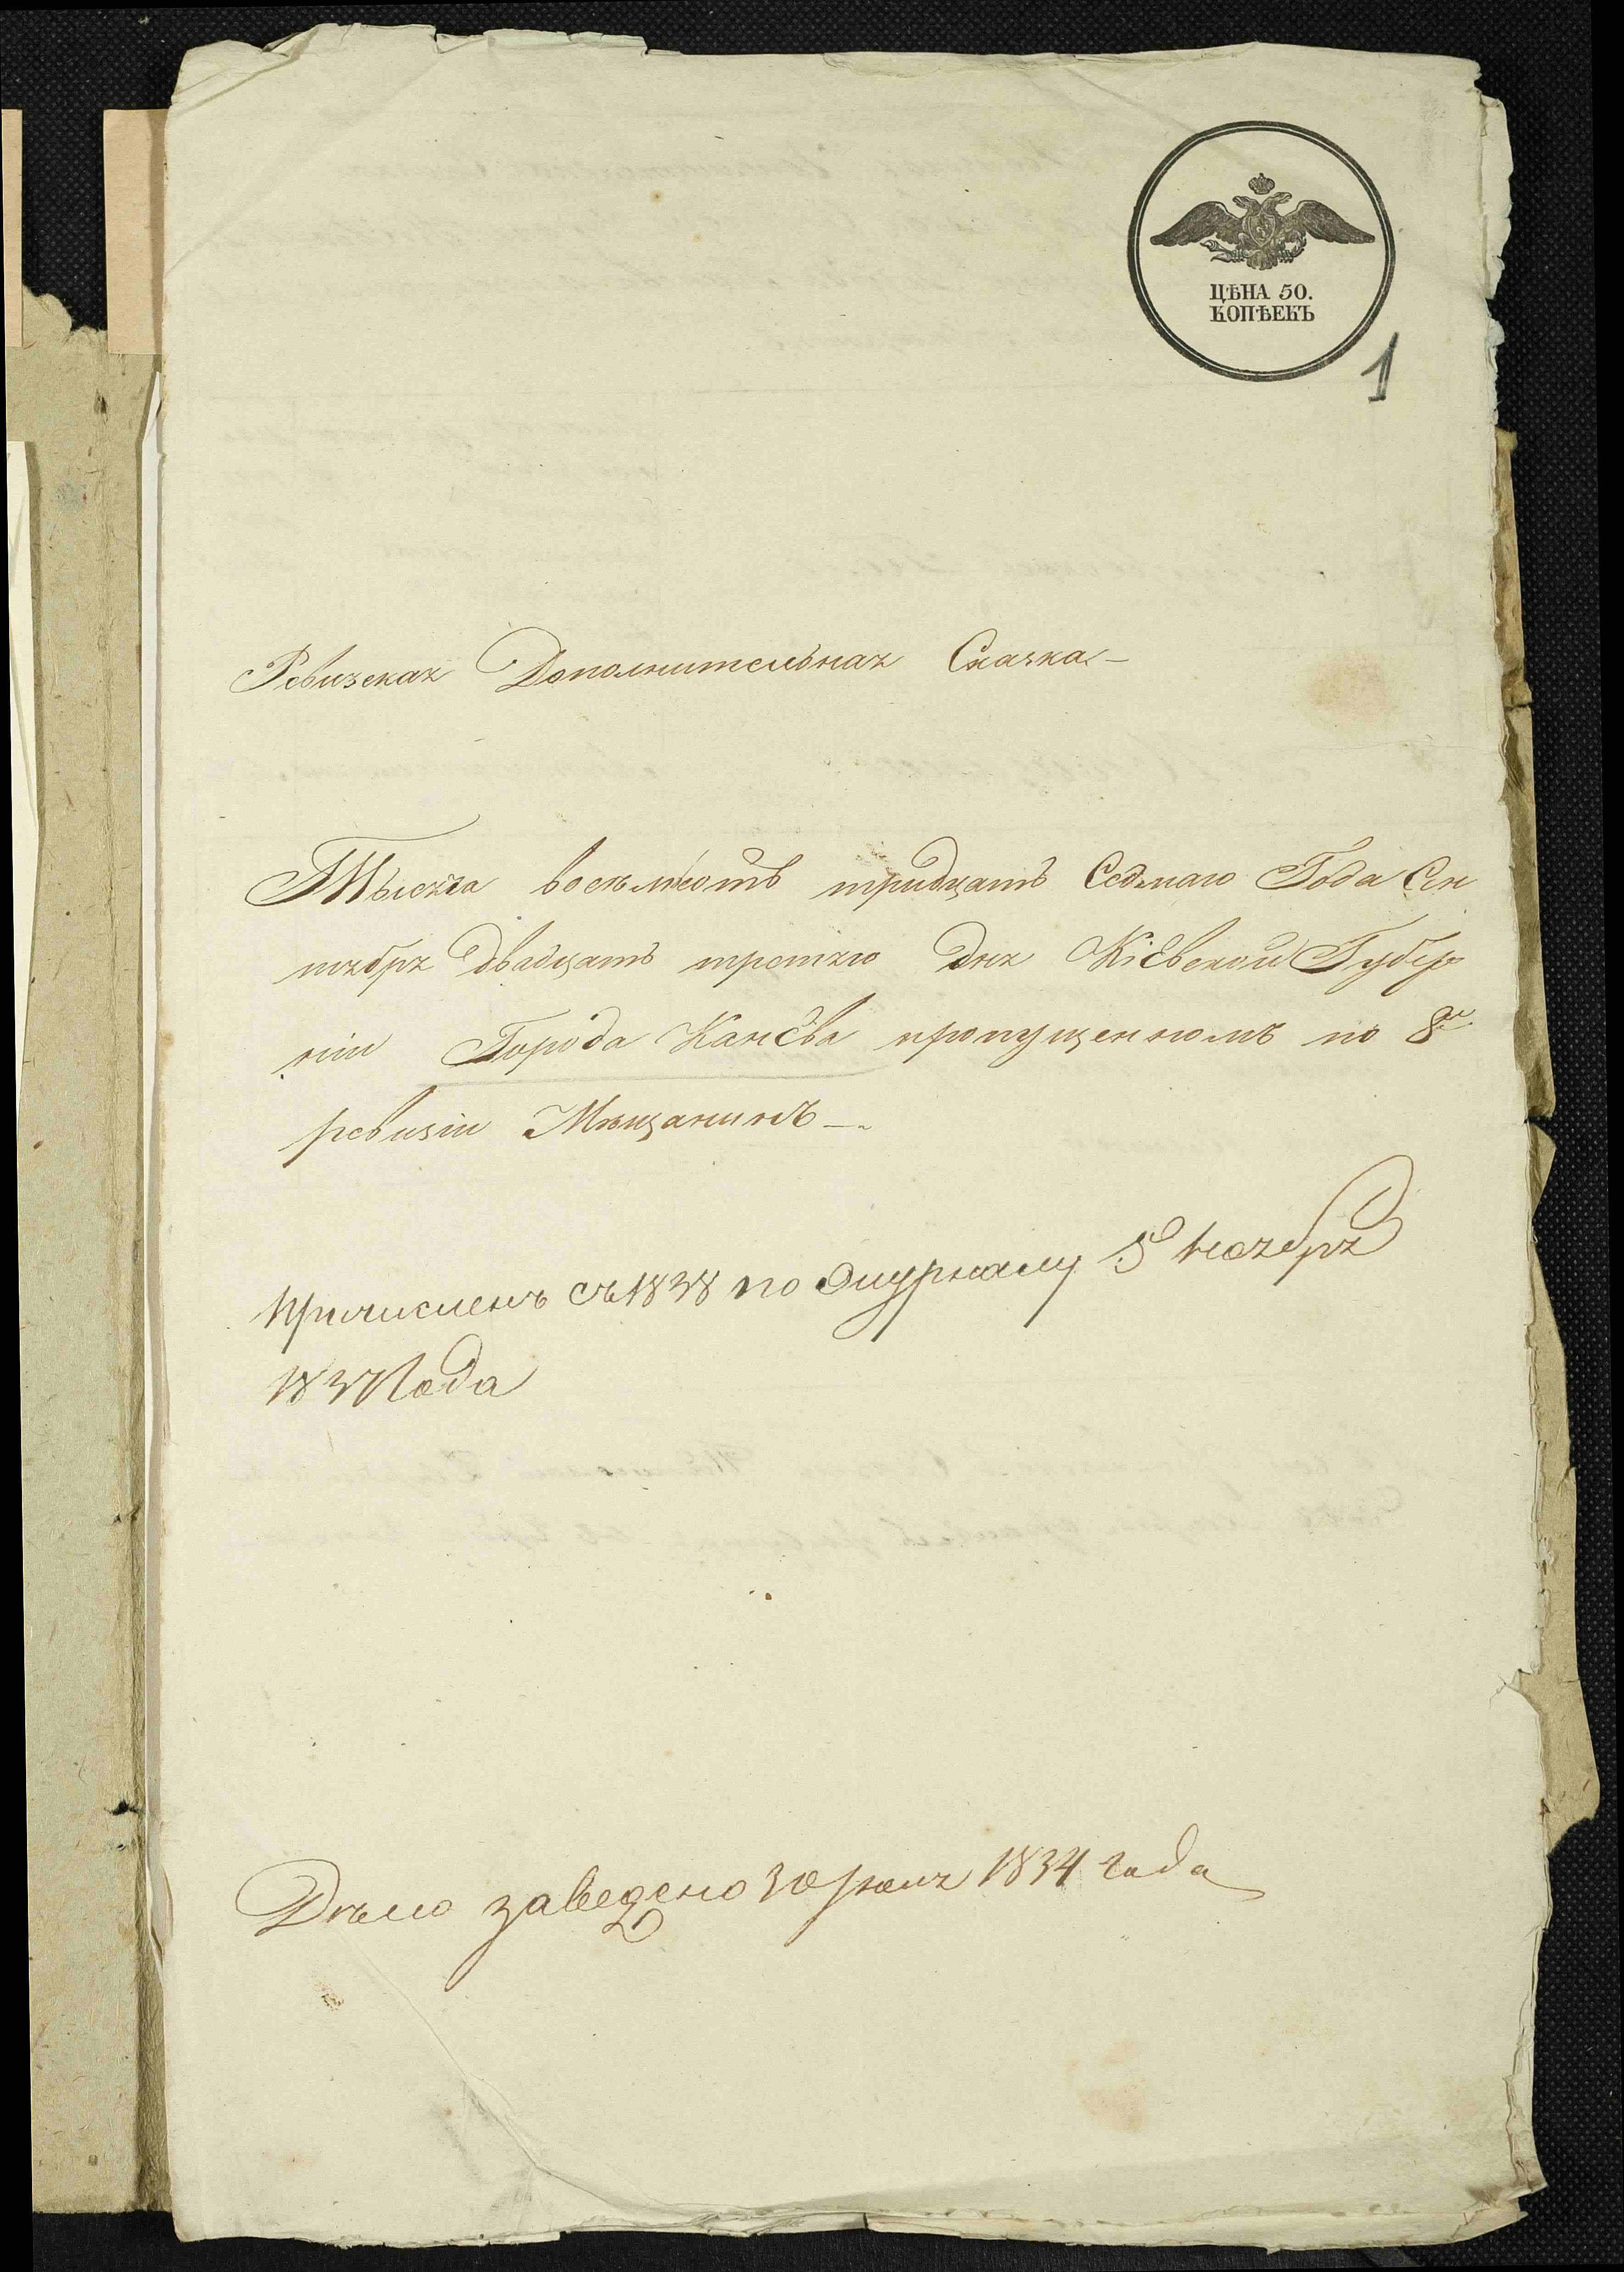 ЦѢНА 50.
КОПѢЕКЪ
1
Ревизская Дополнительная Сказка —
Тысяча восемъсотъ тридцать Седмаго Года Сен
тября двадцать третяго Дня Кіевской Губер
ніи Города Канева пропущенномъ по 8й
ревизіи Мѣщанинѣ —
Причисленъ съ 1838 по Журналу 5го Ноября
1837 Года
Дѣло заведено 30 1834 года